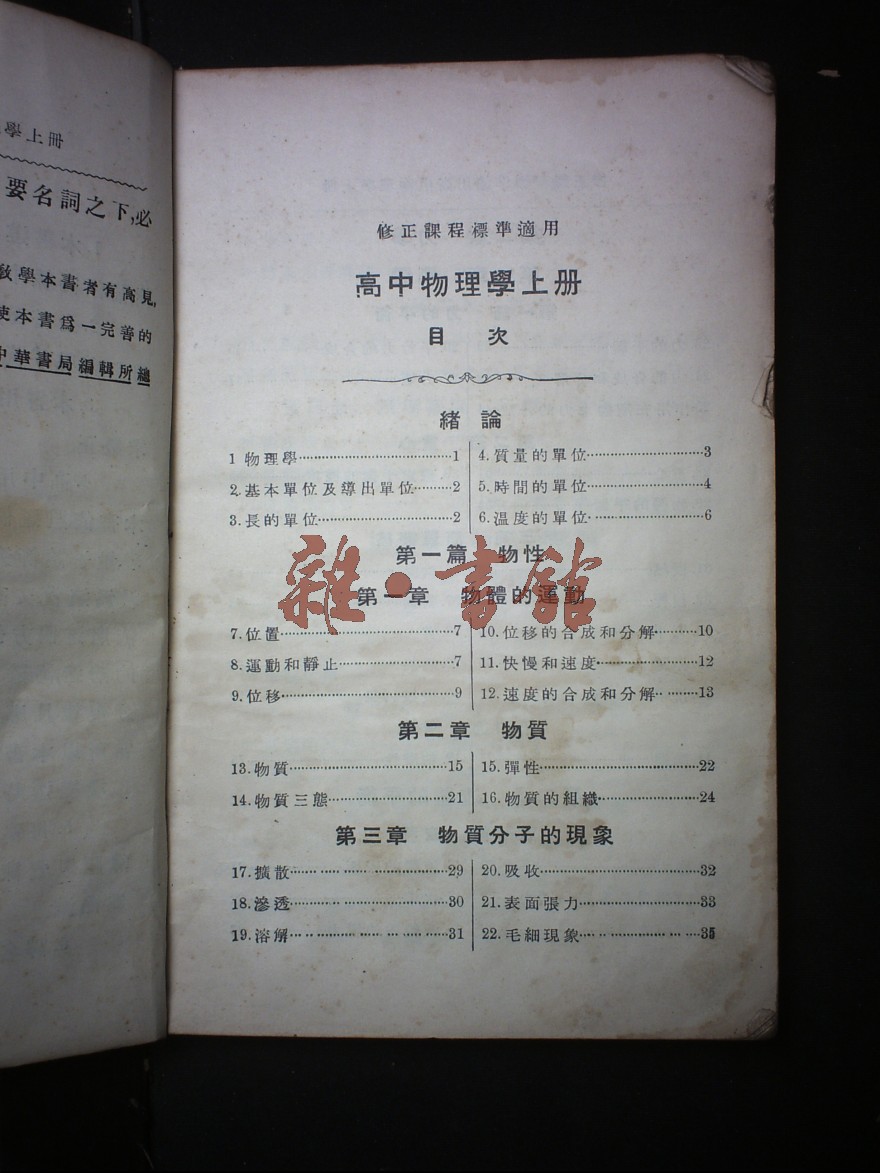 學上冊
要名詞之下,必
教學本書者有高見,
使本書爲一完善的
中華書局編輯所總
修正課程標準適用
高中物理學上册
目 次
緒論
1 物理學……1
2.基本單位及導出單位……2
3.長的單位……2
4.質量的單位……3
5.時間的單位……4
6.温度的單位……6
第一篇 物性
第一章 物體的運動
7.位置……7
8.運動和靜止……7
9.位移……9
10.位移的合成和分解……10
11.快慢和速度……12
12.速度的合成和分解……13
第二章 物質
13.物質……15
14.物質三態……21
15.彈性……22
16.物質的組織……24
第三章 物質分子的現象
17.擴散……29
18.滲透……30
19.溶解……31
20.吸收……32
21.表面張力……33
22.毛細現象……35
雜·書館